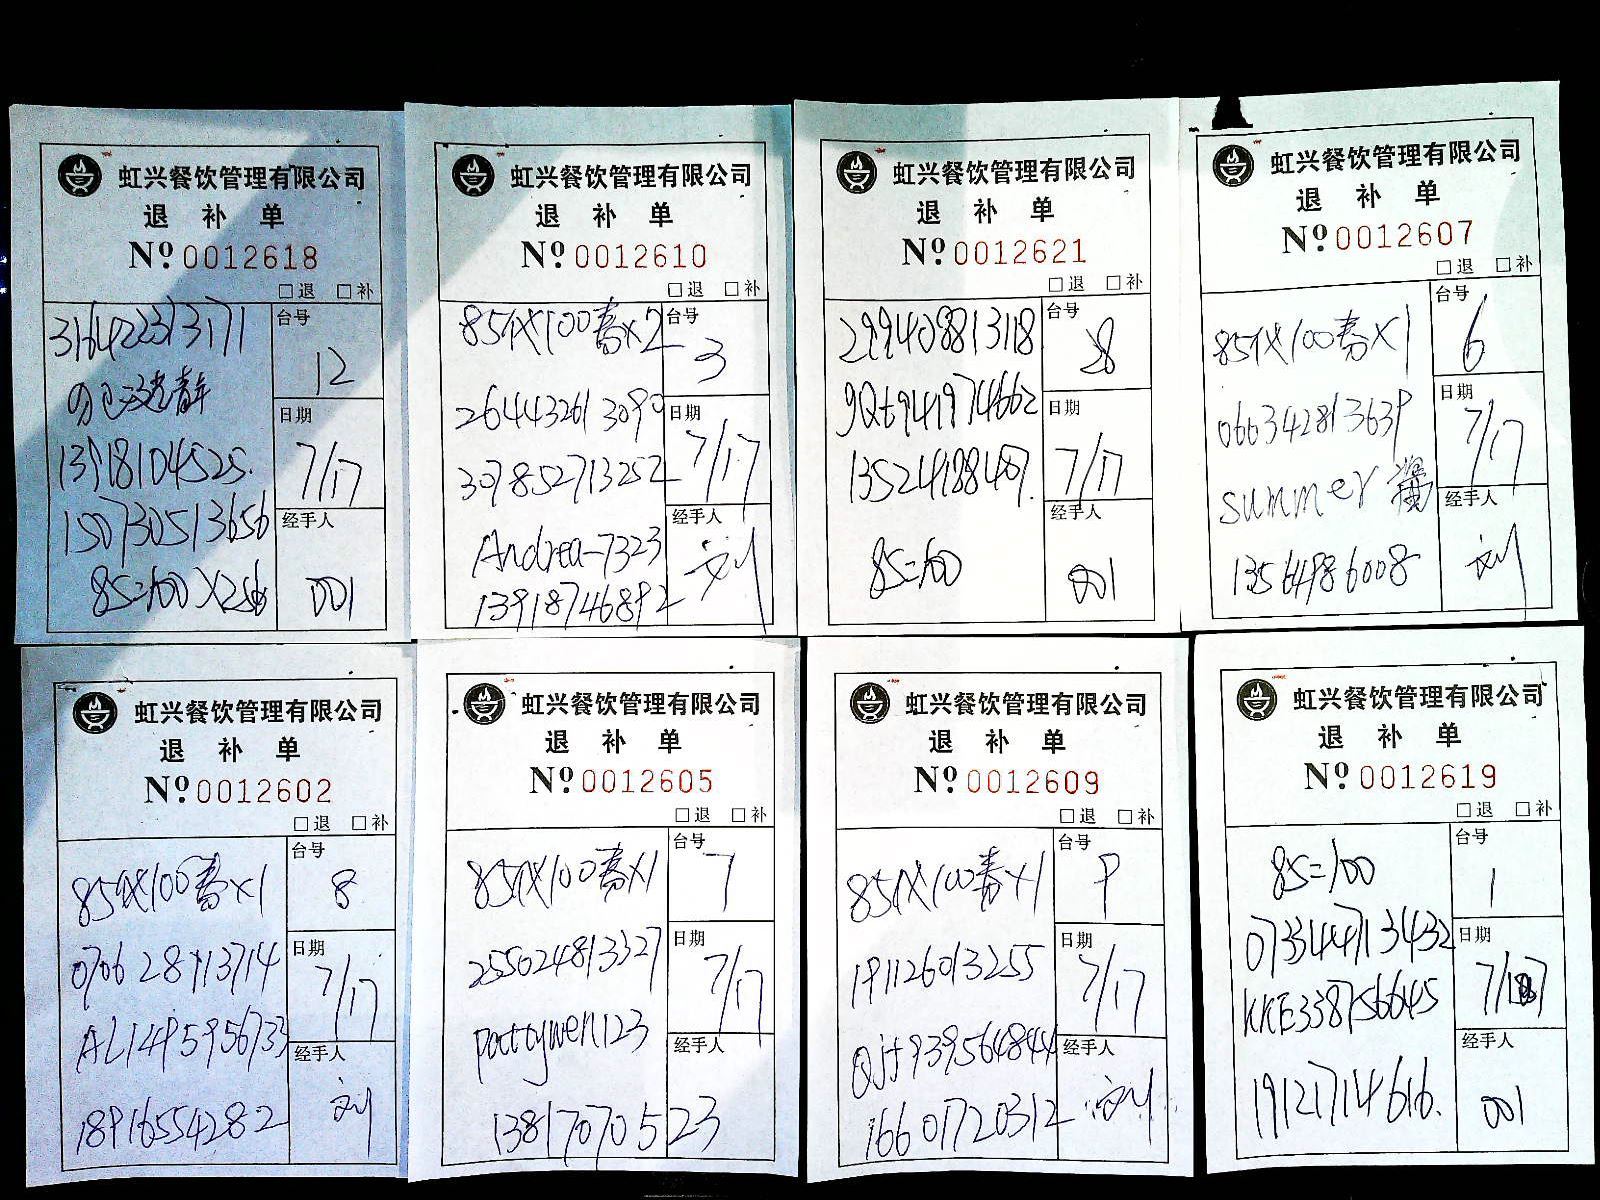 虹兴餐饮管理有限公司
退 补 单
Nº 0012618
□退 □补
316422313171
台号
12
日期
13918104525.
7/17
150730513656
经手人
85=100 X2份
001
虹兴餐饮管理有限公司
退 补 单
Nº 0012610
□退 □补
85代100券x2
台号
3
264432613090
日期
7/17
307852713252
经手人
Andrea-7323
刘
13918746892
虹兴餐饮管理有限公司
退 补 单
Nº 0012621
□退 □补
299408813118
台号
28
日期
7/17
13524188407.
经手人
85=100
001
虹兴餐饮管理有限公司
退 补 单
Nº 0012607
□退 □补
85代100券X1
台号
6
066342813639
日期
7/17
summer
经手人
13564986008
刘
虹兴餐饮管理有限公司
退 补 单
Nº 0012602
□退 □补
85代100券x1
台号
8
070628713714
日期
7/17
AL1495956733
经手人
刘
18916554282
虹兴餐饮管理有限公司
退 补 单
Nº 0012605
□退 □补
85代100券x1
台号
7
255024813327
日期
7/17
pattywen123
经手人
13817070523
虹兴餐饮管理有限公司
退 补 单
Nº 0012609
□退 □补
85代100券x1
台号
9
191126013255
日期
7/17
Qjt9395648444
经手人
刘
16601720312
虹兴餐饮管理有限公司
退 补 单
Nº 0012619
□退 □补
85=100
台号
1
073344713432
日期
KKE338756645
经手人
19121714616.
001